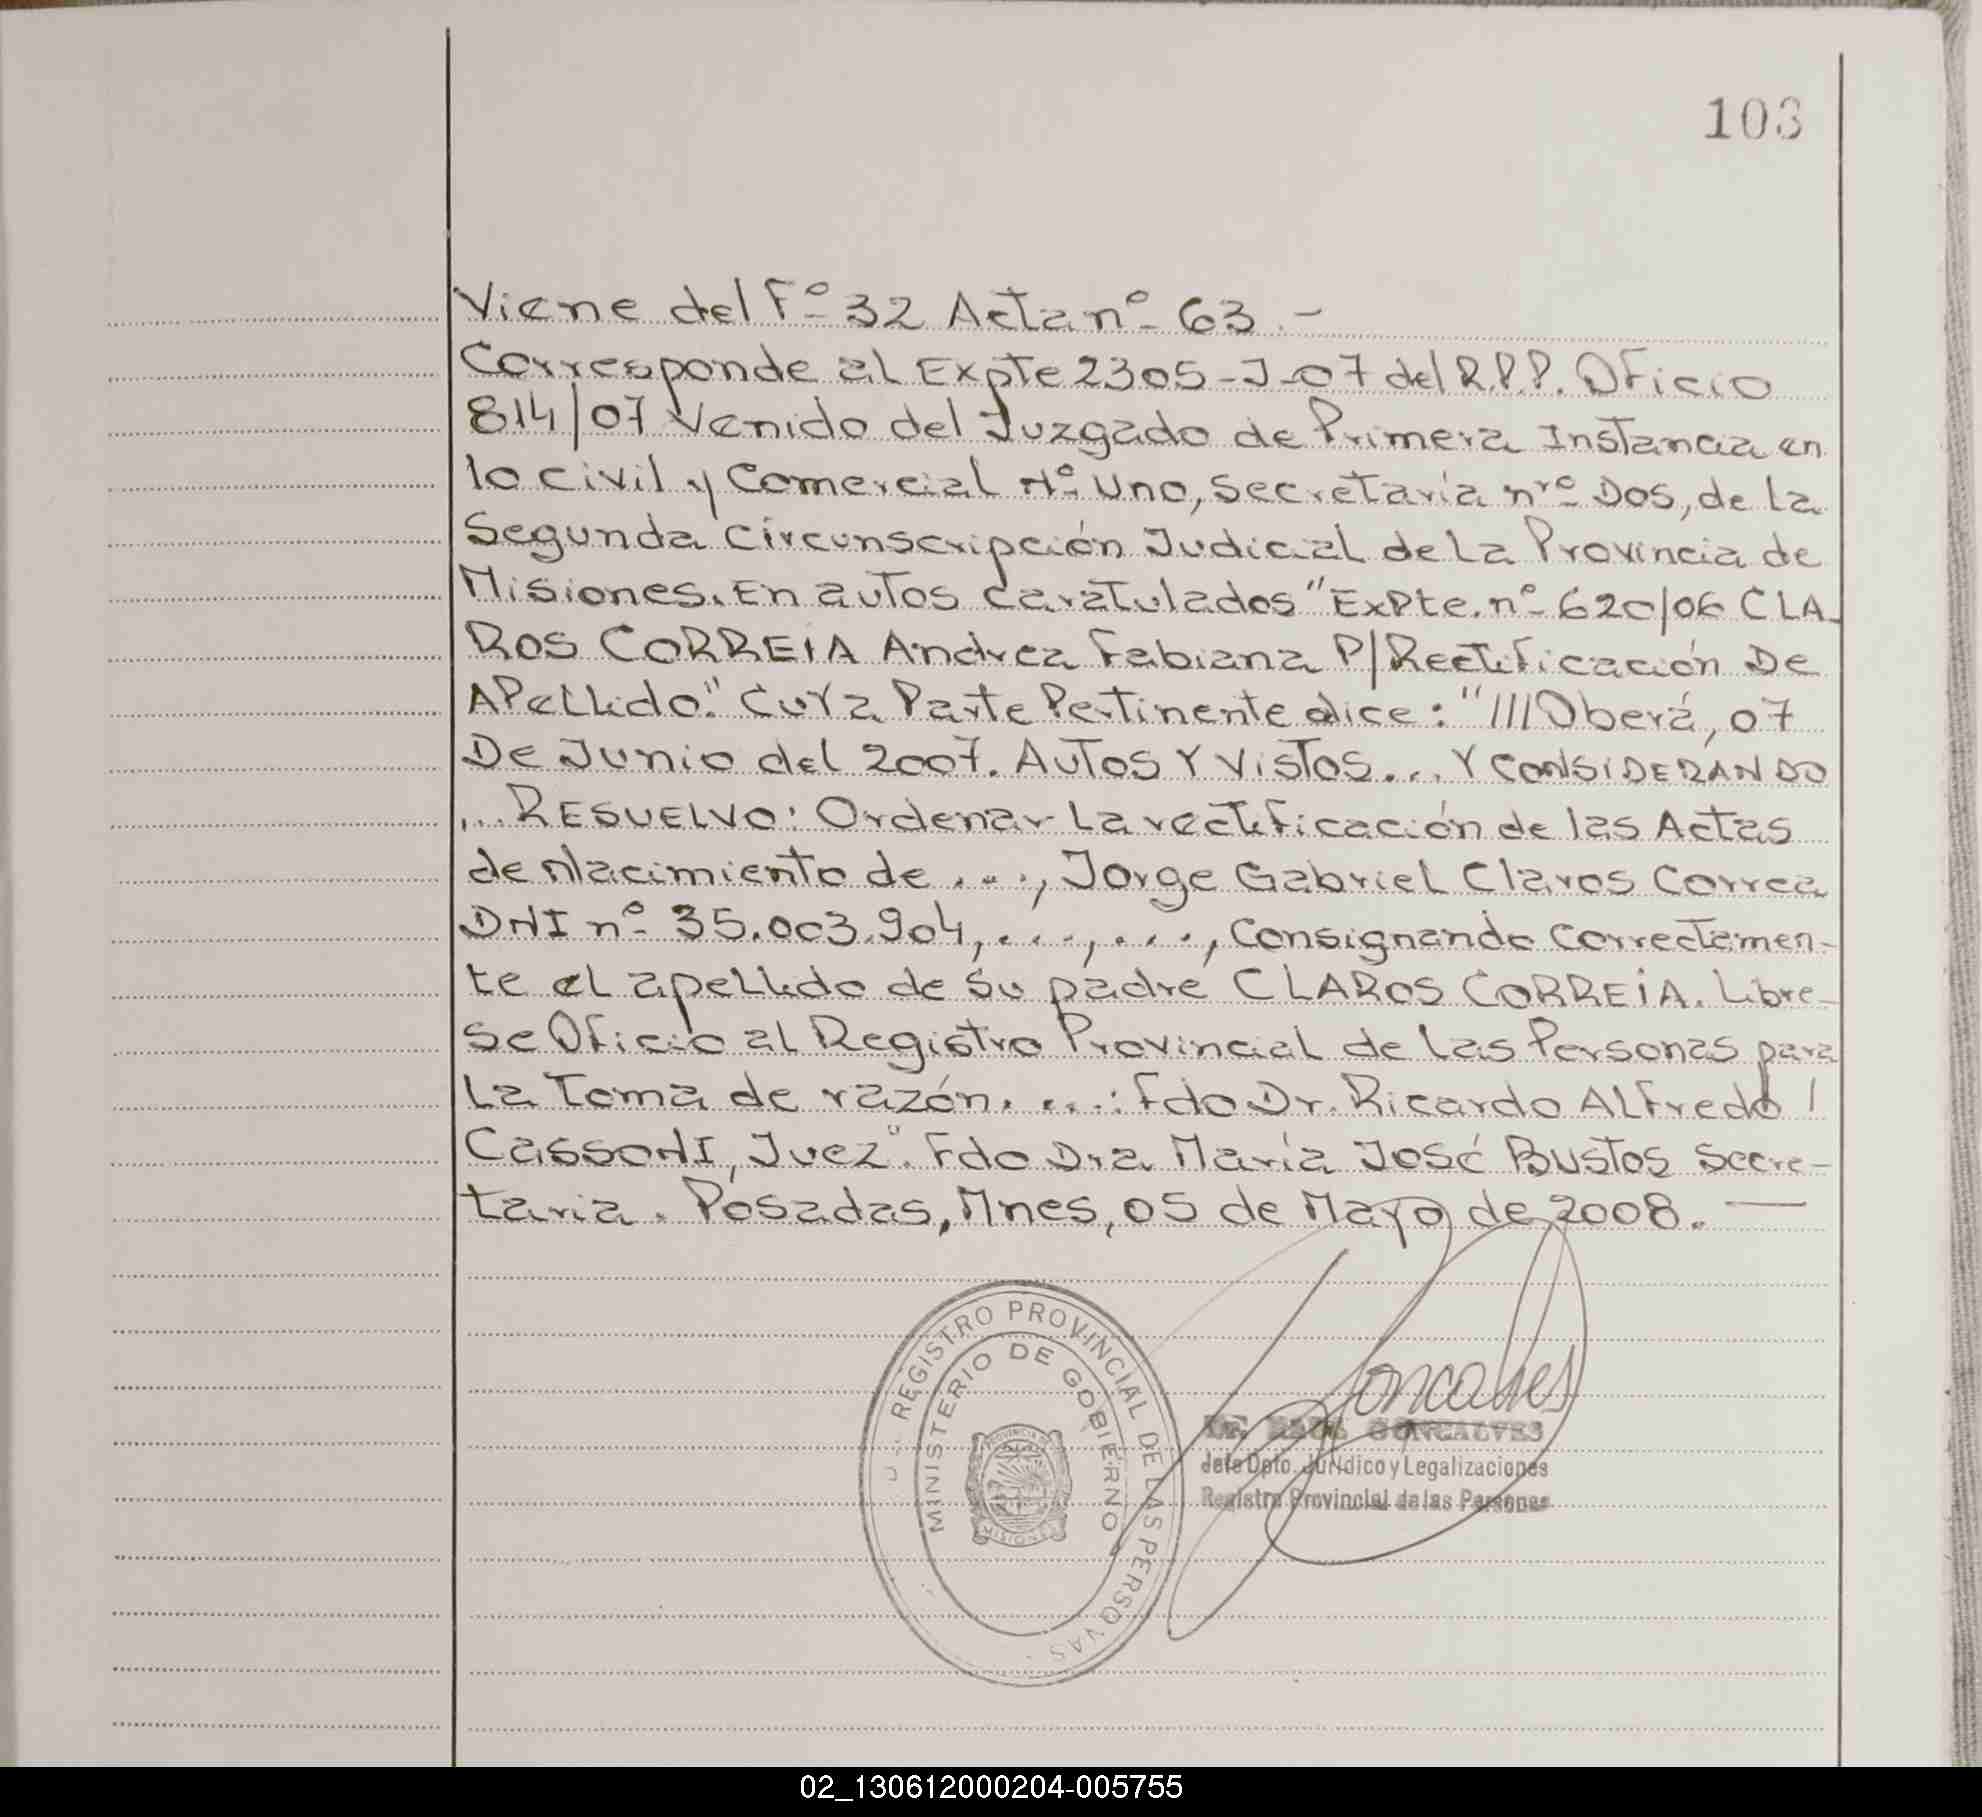 103
Viene del Fº 32 Acta nº 63.-
Corresponde al Expte 2305-J-07 del R.P.P. Oficio
814/07 Venido del Juzgado de Primera Instancia en
lo Civil y Comercial Nº Uno, Secretaría nrº Dos, de La
Segunda Circunscripción Judicial de La Provincia de
Misiones. En autos caratulados "ExPte. nº 620/06 CLA-
ROS CORREIA Andrea Fabiana P/Rectificación De
APellido." CuYa Parte Pertinente dice: "///Oberá, 07
De Junio del 2007. AUTOS Y VISTOS... Y CONSIDERANDO
... RESUELVO: Ordenar La rectificación de las Actas
de Nacimiento de ..., Jorge Gabriel Claros Correa
DNI nº 35.003.904, ..., ..., Consignando Correctamen-
te el apellido de su padre CLAROS CORREIA. Libre-
se Oficio al Registro Provincial de Las Personas para
La Toma de razón. ...: Fdo Dr. Ricardo ALFredo
CassoNI, Juez". Fdo Dra María José Bustos Secre-
taria. Posadas, Mnes, 05 de Mayo de 2008.
REGISTRO PROVINCIAL DE LAS PERSONAS
MINISTERIO DE GOBIERNO
PROVINCIA DE
MISIONES
Goncalves
GONCALVES
Jefe Dpto. Jurídico y Legalizaciones
Registro Provincial de las Personas
02_130612000204-005755